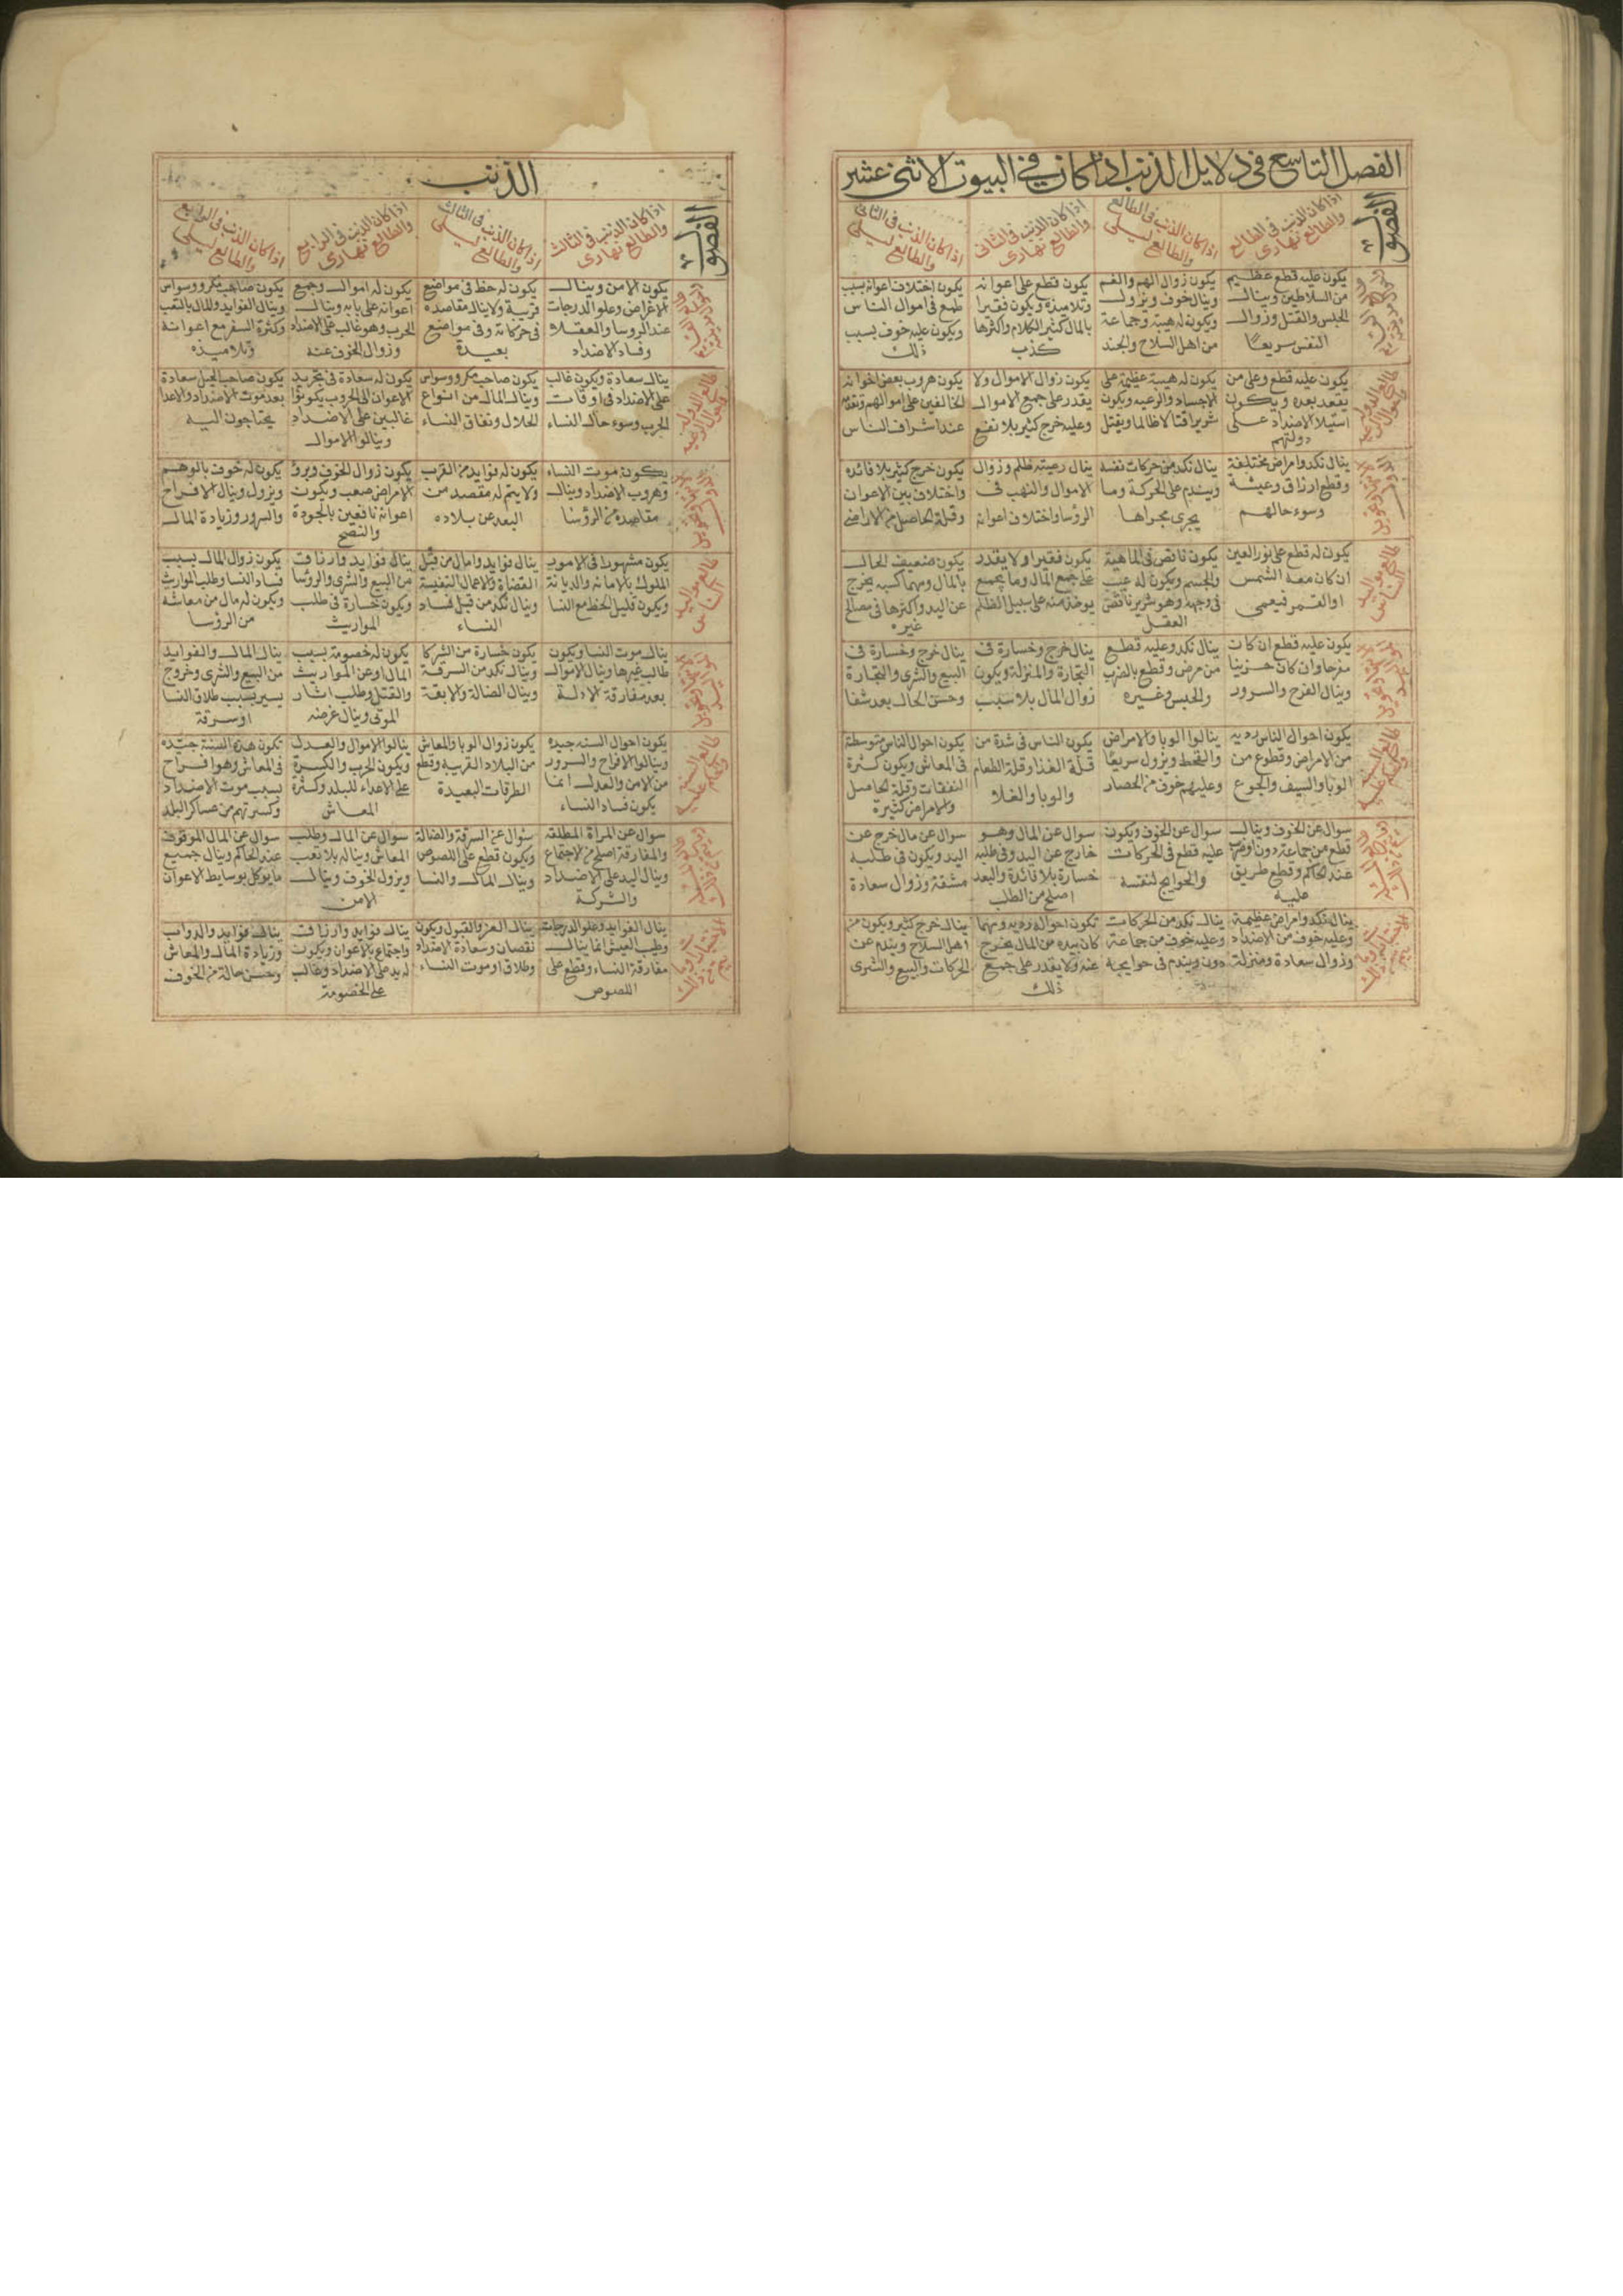 الفصل التاسع في دلايل الذنب اذا كان في البيوت الاثني عشر
الفصول
اذا كان الذنب في الطالع
والطالع نهاري
اذا كان الذنب في الطالع
والطالع ليلي
اذا كان الذنب في الثاني
والطالع نهاري
اذا كان الذنب في الثاني
والطالع ليلي
يكون عليه قطع عظيم
من السلاطين وينال
الحبس والقتل وزوال
النفس سريعًا
يكون زوال الهم والغم
وينال خوف ويزول
ويكون له هيبة وجماعة
من اهل السلاح والجند
يكون قطع على اعوانه
وتلاميذه ويكون فقيرا
بالمال كثير الكلام واكثرها
كذب
يكون اختلاف اعوانه بسبب
طمع في اموال الناس
ويكون عليه خوف بسبب
ذلك
طالع الدولة
يكون عليه قطع وعلى من
يقعد بعده ويكون
استيلا الاضداد على
دولتهم
يكون له هيبة عظيمة على
الاجساد والرعيه ويكون
شريرا قتالا ظالما ويقتل
يكون زوال الاموال ولا
يقدر على جميع الاموال
وعليه خرج كثير بلا نفع
يكون هروب بعض اخوانه
المخالفين على اموالهم
عند اشراف الناس
ينال نكد وامراض مختلفة
وقطع ارزاق وعيشة
وسوء حالهم
ينال نكد من حركات نفسه
ويندم على الحركة وما
يجري مجراها
ينال رعيته ظلم وزوال
الاموال والنهب في
الرؤسا واختلاف اعوانه
يكون خرج كثير بلا فائده
واختلاف بين الاعوان
وقلة الحاصل من الاراضي
طالع مواليد
الناس
يكون له قطع على نور العين
ان كان معه الشمس
او القمر فيعمى
يكون ناقص في الماهية
والجسم ويكون له عيب
في وجهه وهو شرير ناقص
العقل
يكون فقيرا ولا يقدر
على جمع المال وما يجمع
يوخذ منه على سبيل الظلم
يكون ضعيف الحال
بالمال ومهما كسبه يخرج
عن اليد واكثرها في مصالح
غيره
يكون عليه قطع ان كان
مفرحا وان كان حزينا
وينال الفرح والسرور
ينال نكد وعليه قطع
من مرض وقطع بالضرب
والحبس وغيره
ينال خرج وخسارة في
التجارة والمنزلة ويكون
زوال المال بلا سبب
ينال خرج وخسارة في
البيع والشرى والتجارة
وحسن الحال بعد شقا
يكون احوال الناس رديه
من الامراض وقطوع من
الوبا والسيف والجوع
ينالوا الوبا والامراض
والقحط ويزول سريعًا
وعليهم خوف من الحصار
يكون الناس في شدة من
قلة الغذا وقلة الطعام
والوبا والغلا
يكون احوال الناس متوسطة
في المعاش ويكون كثرة
النفقات وقلة الحاصل
والامراض كثيرة
سوال عن الخوف وينال
قطع من جماعة دون
عند الحاكم وقطع طريق
عليه
سوال عن الخوف ويكون
عليه قطع في الحركات
والحوايج لنفسه
سوال عن المال وهو
خارج عن اليد وفي طلبه
خسارة بلا فائدة والبعد
اصلح من الطلب
سوال عن مال خرج عن
اليد ويكون في طلبه
مشقة وزوال سعادة
ينال نكد وامراض عظيمة
وعليه خوف من الاضداد
وزوال سعادة ومنزلة
ينال نكد من الحركات
وعليه خوف من جماعة
دون ويندم في حوايجه
تكون احواله رديه ومهما
كان بيده من المال يخرج
عنه ولا يقدر على جميع
ذلك
ينال خرج كثير ويكون من
اهل السلاح ويندم عن
الحركات والبيع والشرى
الذنب
الفصول
اذا كان الذنب في الثالث
والطالع نهاري
اذا كان الذنب في الثالث
والطالع ليلي
اذا كان الذنب في الرابع
والطالع نهاري
اذا كان الذنب في الرابع
والطالع ليلي
يكون الامن وينال
الاغراض وعلو الدرجات
عند الروسا والعقلا
وفساد الاضداد
يكون له حظ في مواضع
قريبة ولا ينال مقاصده
في حركاته وفي مواضع
بعيدة
يكون له اموال وجميع
اعوانه على بابه وينال
الحرب وهو غالب على الاضداد
وزوال الخوف عنه
يكون صاحب مكر ووسواس
وينال الفوايد والمال بالتعب
وكثرة السفر مع اعوانه
وتلاميذه
ينال سعادة ويكون غالب
على الاضداد في اوقات
الحرب وسوء حال النساء
يكون صاحب مكر ووسواس
وينال المال من انواع
الحلال ونفاق النساء
يكون له سعادة في تجريد
الاعوان الى الحروب يكونوا
غالبين على الاضداد
وينالوا الاموال
يكون صاحب الحيل سعادة
بعد موت الاضداد والاعدا
يحتاجون اليه
يكون موت النساء
وهروب الاضداد وينال
مقاصده من الرؤسا
يكون له فوايد من القرب
ولا يتم له مقصد من
البعد عن بلاده
يكون زوال الخوف وبرؤ
الامراض صعب ويكون
اعوانه نافعين بالجودة
والنصح
يكون له خوف بالوهم
ويزول وينال الافراح
والسرور وزيادة المال
طالع مواليد
الناس
يكون مشهورا في الامور
الملوك بالامانه والديانة
ويكون قليل الحظ مع النسا
ينال فوايد وامال من قبل
القضاة والاعمال النفيسة
وينال نكد من قبل فساد
النساء
ينال فوايد وارزاق
من البيع والشرى والرؤسا
ويكون خسارة في طلب
المواريث
يكون زوال المال بسبب
فساد النسا وطلب المواريث
ويكون له مال من معاشه
من الرؤسا
ينال موت النسا ويكون
طالب غيرها وينال الاموال
بعد مفارقة الادلة
يكون خسارة من الشركا
وينال نكد من السرقة
وينال الضالة والابقة
يكون له خصومة بسبب
المال او عن المواريث
والقتل وطلب اثار
الموتى وينال غرضه
ينال المال والفوايد
من البيع والشرى وخروج
يسير بسبب طلاق النسا
او سرقة
يكون احوال السنه جيده
وينالوا الافراح والسرور
من الامن والعدل انما
يكون فساد النساء
يكون زوال الوبا والمعاش
من البلاد القريبة وقطع
الطرقات البعيدة
ينالوا الاموال والعدل
ويكون الحرب والكسرة
على الاعداء للبلد وكثرة
المعاش
تكون هذه السنة جيده
في المعاش وهو افراح
بسبب موت الاضداد
وكسرتهم من عساكر البلد
سوال عن المراة المطلقه
والمفارقة اصلح من الاجتماع
وينال اليد على الاضداد
والشركة
سؤال عن السرقة والضالة
ويكون قطع على اللصوص
وينال المال والنسا
سوال عن المال وطلب
المعاش ويناله بلا تعب
ويزول الخوف وينال
الامن
سوال عن المال الموقوف
عند الحاكم وينال جميع
ما يوكل بوسايط الاعوان
ينال الفوايد وعلو الدرجات
وطيب العيش انما ينال
مفارقة النساء وقطع على
اللصوص
ينال العز والقبول ويكون
نقصان وسعادة الاضداد
وطلاق او موت النساء
ينال فوايد وارزاق
واجتماع بالاعوان ويكون
له يد على الاضداد وغالب
على الخصومة
ينال فوايد والدواب
وزيادة المال والمعاش
وحسن حاله من الخوف